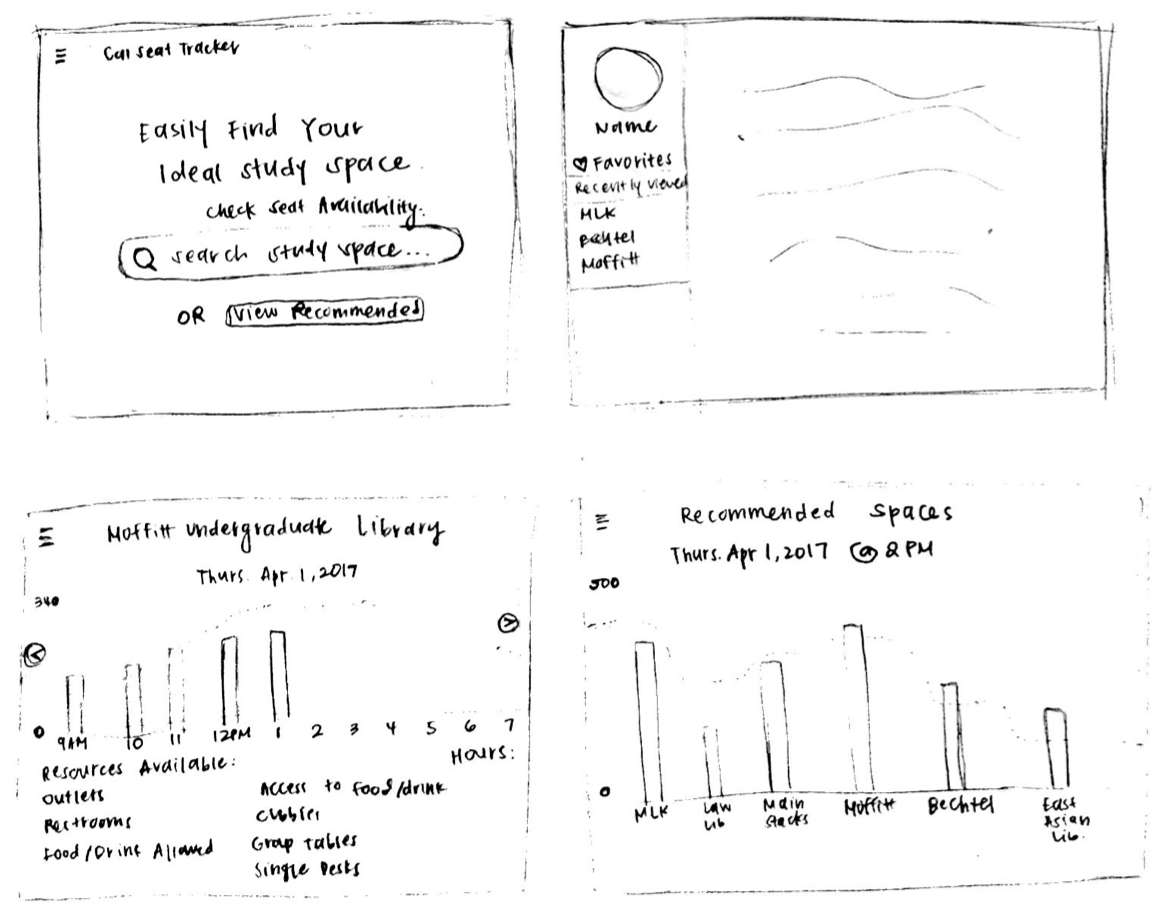 Cal Seat Tracker
Easily Find Your
Ideal study space.
check seat Availability.
search study space...
OR View Recommended
Name
Favorites
Recently viewed
MLK
Bechtel
Moffitt
Moffitt undergraduate Library
Thurs. Apr. 1, 2017
340
0
9AM 10 11 12PM 1 2 3 4 5 6 7
Hours:
Resources Available:
Outlets
Restrooms
Food/Drink Allowed
Access to Food/drink
Cubbies
Group Tables
Single Desks
Recommended Spaces
Thurs. Apr 1, 2017 @ 2PM
500
0
MLK
Law
Lib
Main
Stacks
Moffitt
Bechtel
East
Asian
Lib.